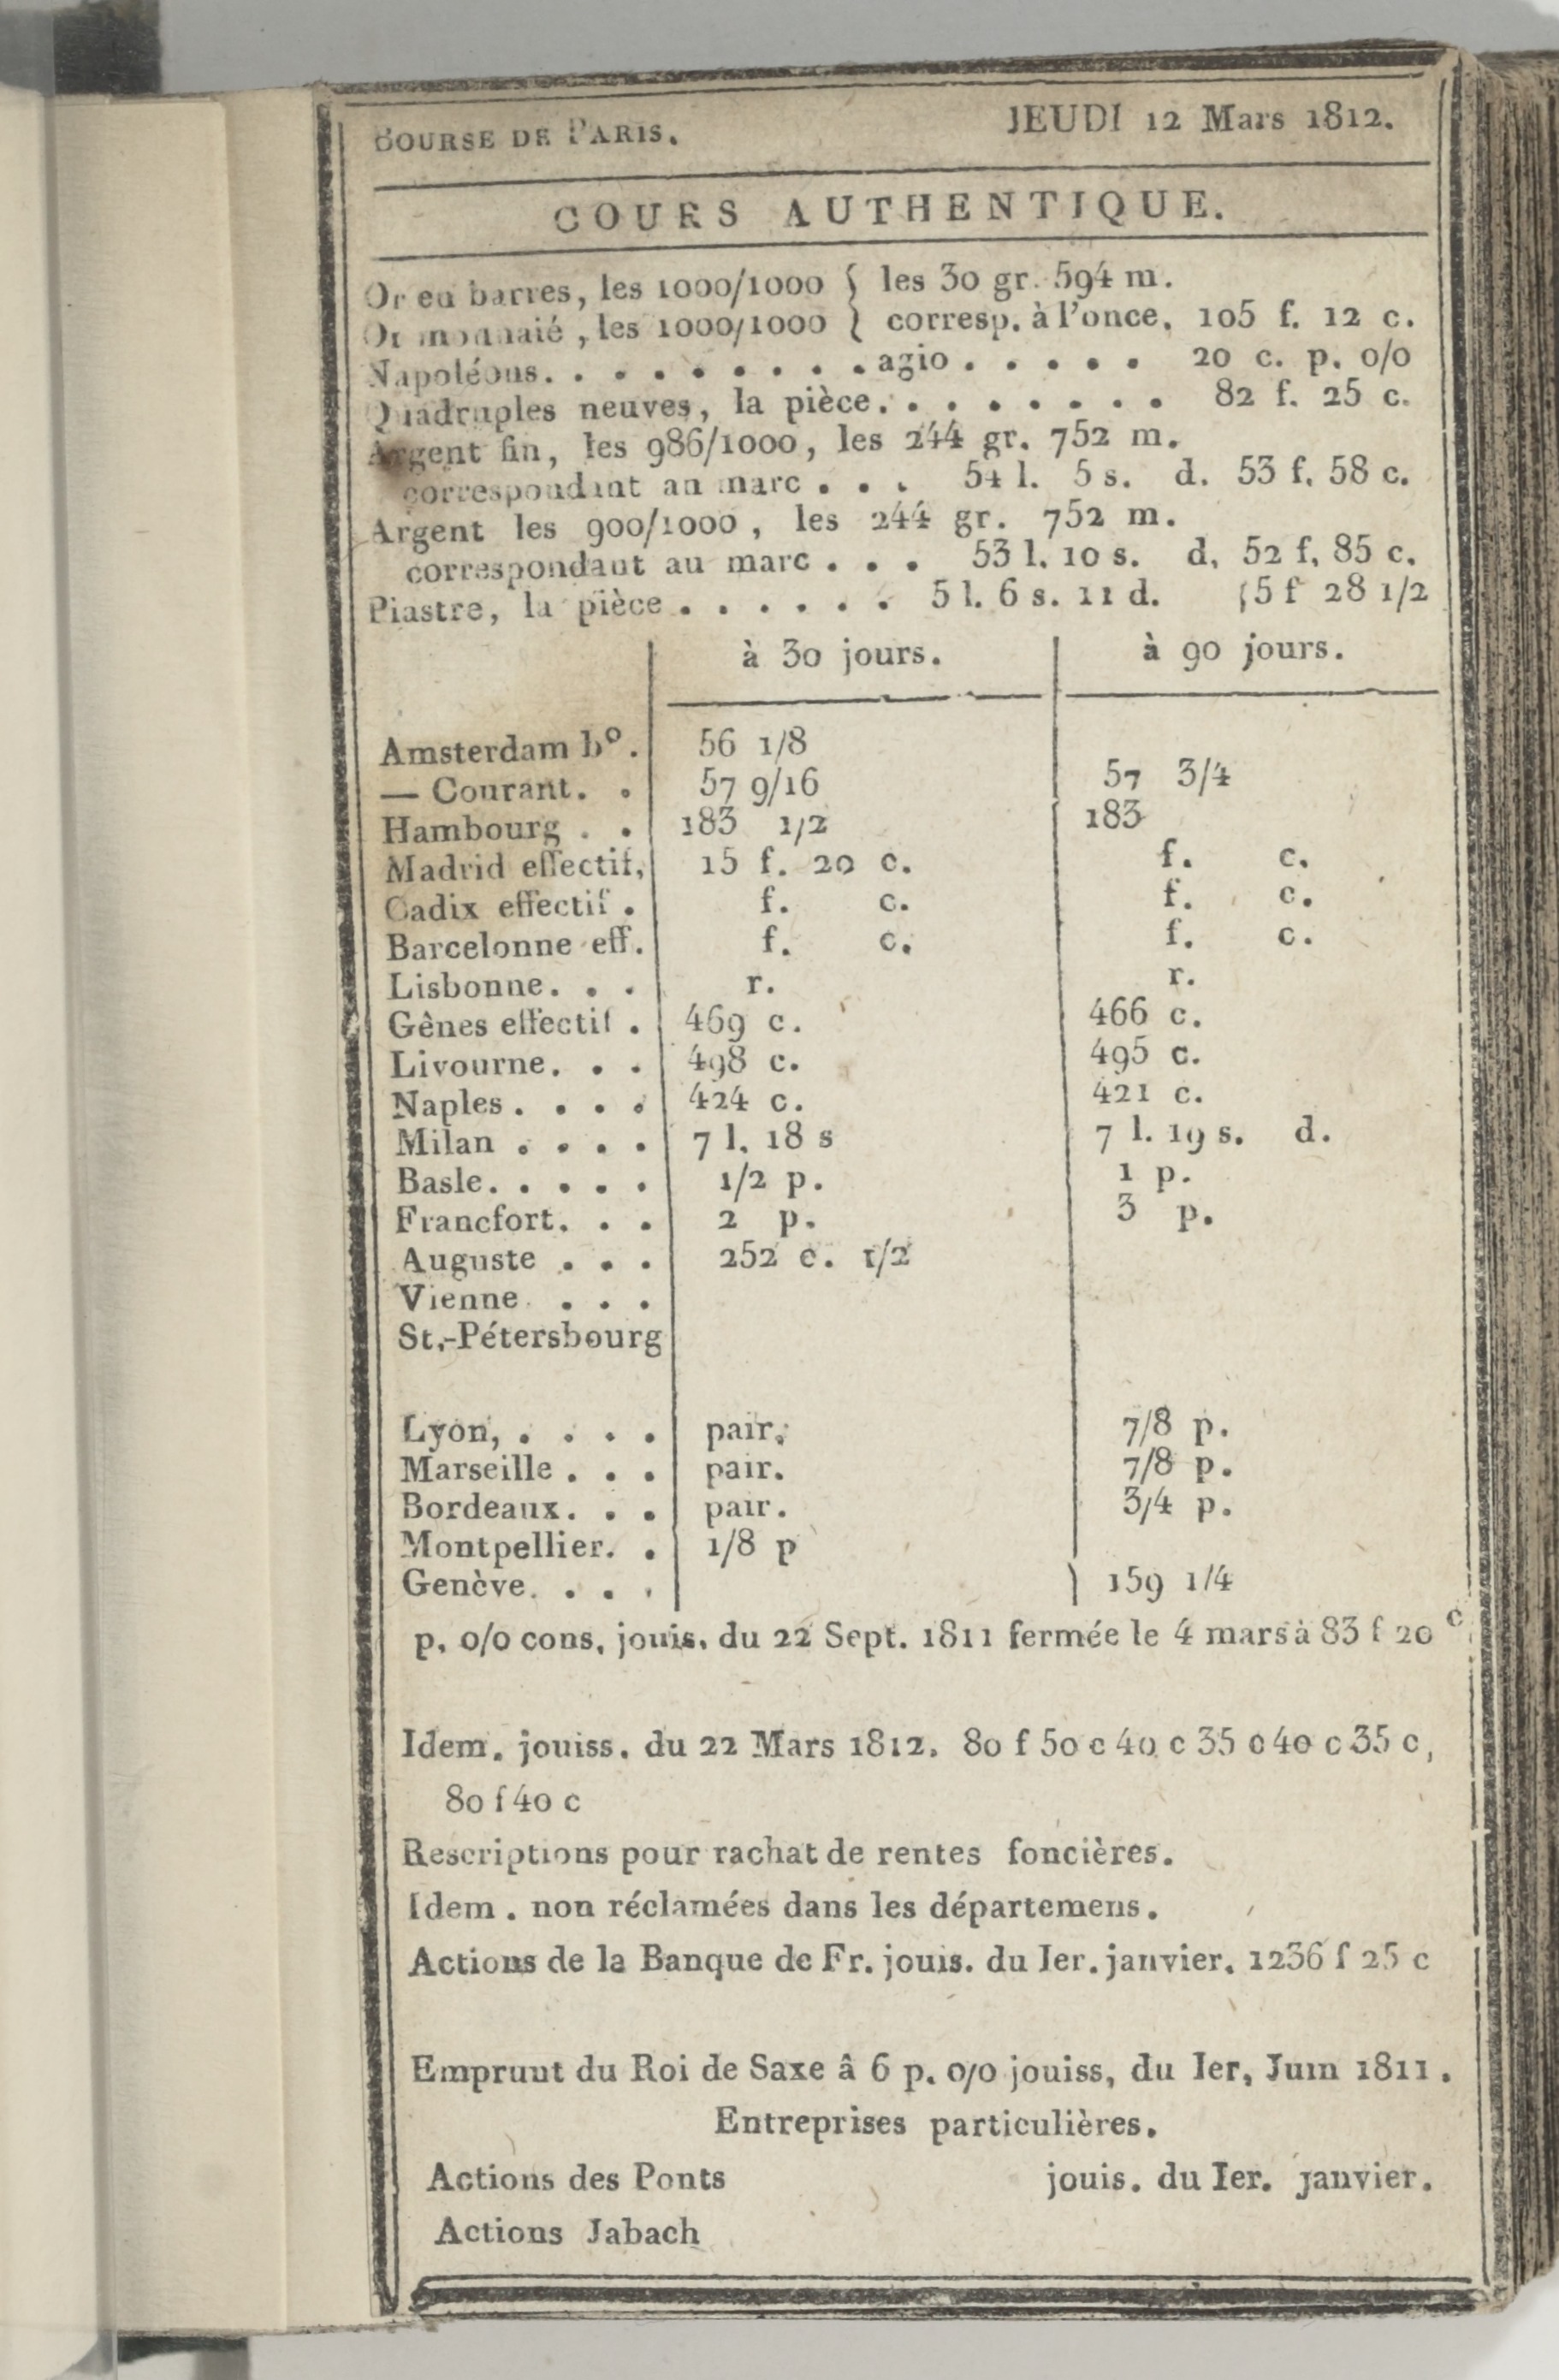 BOURSE DE PARIS. JEUDI 12 Mars 1812.
COURS AUTHENTIQUE.
Or en barres, les 1000/1000 } les 30 gr. 594 m.
Or monnaié, les 1000/1000 } corresp. à l'once, 105 f. 12 c.
Napoléons. . . . . . . . . agio . . . . . 20 c. p. 0/0
Quadruples neuves, la pièce. . . . . . . . 82 f. 25 c.
Argent fin, les 986/1000, les 244 gr. 752 m.
correspondant au marc . . . 54 l. 5 s. d. 53 f. 58 c.
Argent les 900/1000, les 244 gr. 752 m.
correspondant au marc . . . 53 l. 10 s. d, 52 f, 85 c.
Piastre, la pièce . . . . . . 5 l. 6 s. 11 d. 5 f 28 1/2
à 30 jours. à 90 jours.
Amsterdam bº. 56 1/8
— Courant. . 57 9/16 57 3/4
Hambourg . . 183 1/2 183
Madrid effectif, 15 f. 20 c. f. c.
Cadix effectif . f. c. f. c.
Barcelonne eff. f. c. f. c.
Lisbonne. . . r. r.
Gênes effectif . 469 c. 466 c.
Livourne. . . 498 c. 495 c.
Naples . . . . 424 c. 421 c.
Milan . . . . 7 l. 18 s 7 l. 19 s. d.
Basle. . . . . 1/2 p. 1 p.
Francfort. . . 2 p. 3 p.
Auguste . . . 252 c. 1/2
Vienne . . .
St.-Pétersbourg
Lyon, . . . . pair. 7/8 p.
Marseille . . . pair. 7/8 p.
Bordeaux. . . pair. 3/4 p.
Montpellier. . 1/8 p
Genève. . . . 159 1/4
p. 0/0 cons, jouis. du 22 Sept. 1811 fermée le 4 mars à 83 f 20 c
Idem. jouiss. du 22 Mars 1812. 80 f 50 c 40 c 35 c 40 c 35 c,
80 f 40 c
Rescriptions pour rachat de rentes foncières.
Idem . non réclamées dans les départemens.
Actions de la Banque de Fr. jouis. du Ier. janvier. 1236 f 25 c
Emprunt du Roi de Saxe â 6 p. 0/0 jouiss, du Ier, Juin 1811 .
Entreprises particulières.
Actions des Ponts jouis. du Ier. janvier.
Actions Jabach